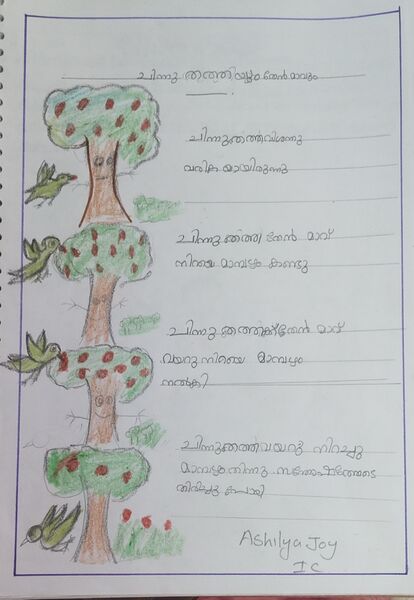 ചിന്നു തത്തയും തേൻമാവും
ചിന്നുതത്തവിശന്നു
വരികയായിരുന്നു
ചിന്നു തത്ത തേൻ മാവ്
നിറയെ മാമ്പഴം കണ്ടു
ചിന്നു തത്തക്ക് തേൻ മാവ്
വയറു നിറയെ മാമ്പഴം
നൽകി
ചിന്നുതത്തവയറു നിറച്ചു
മാമ്പഴംതിന്നു സന്തോഷത്തോടെ
തിരിച്ചു പോയി
Ashilya Joy
I C